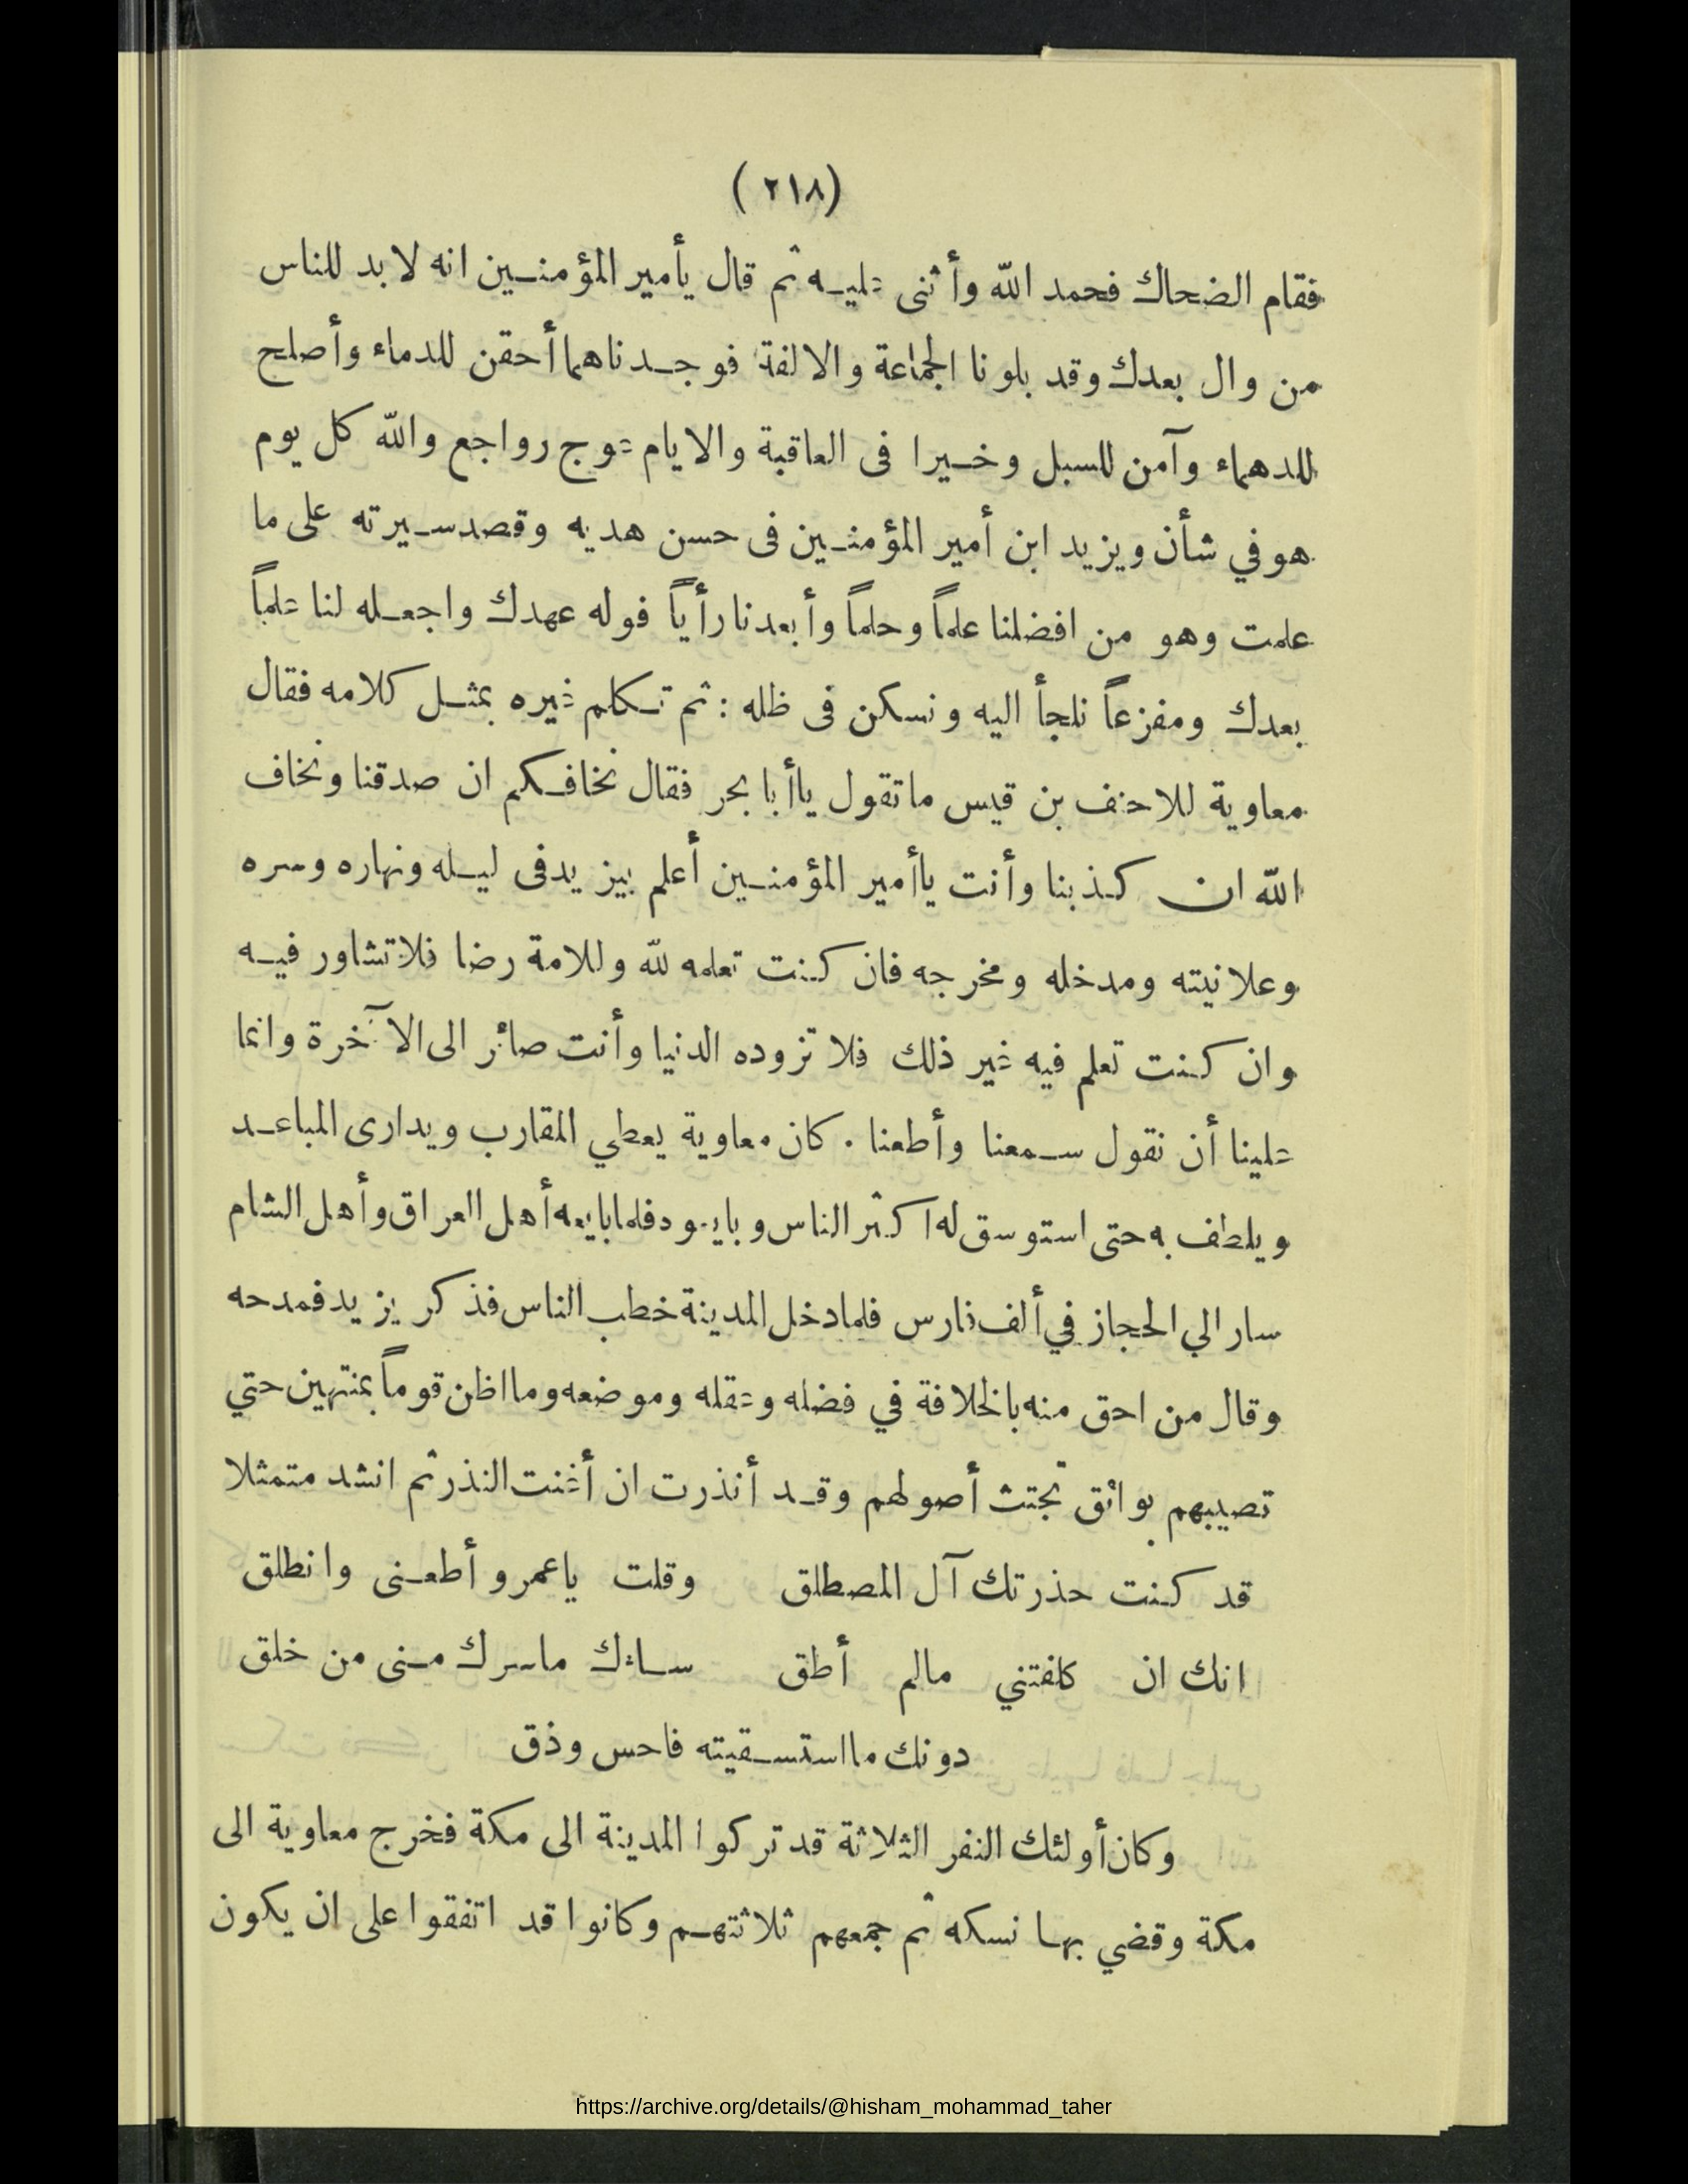 (٢١٨)
فقام الضحاك فحمد الله وأثنى عليه ثم قال يأمير المؤمنين انه لا بد للناس
من وال بعدك وقد بلونا الجماعة والالفة فوجدناهما أحقن للدماء وأصلح
للدهماء وآمن للسبل وخيرا فى العاقبة والايام عوج رواجع والله كل يوم
هو في شأن ويزيد ابن أمير المؤمنين فى حسن هديه وقصد سيرته على ما
علمت وهو من افضلنا علماً وحلماً وأبعدنا رأياً فوله عهدك واجعله لنا علماً
بعدك ومفزعاً نلجأ اليه ونسكن فى ظله : ثم تكلم غيره بمثل كلامه فقال
معاوية للاحنف بن قيس ما تقول ياأبا بحر فقال نخافكم ان صدقنا ونخاف
الله ان كذبنا وأنت ياأمير المؤمنين أعلم بيزيد فى ليله ونهاره وسره
وعلانيته ومدخله ومخرجه فان كنت تعلمه لله وللامة رضا فلا تشاور فيه
وان كنت تعلم فيه غير ذلك فلا تزوده الدنيا وأنت صائر الى الآخرة وانما
علينا أن نقول سمعنا وأطعنا . كان معاوية يعطي المقارب ويدارى المباعد
ويلطف به حتى استوسق له اكثر الناس وبايعوه فلما بايعه أهل العراق وأهل الشام
سار الي الحجاز في ألف فارس فلما دخل المدينة خطب الناس فذكر يزيد فمدحه
وقال من احق منه بالخلافة في فضله وعقله وموضعه وما اظن قوماً بمنتهين حتي
تصيبهم بوائق تجتث أصولهم وقد أنذرت ان أغنت النذر ثم انشد متمثلا
قد كنت حذرتك آل المصطلق وقلت ياعمرو أطعنى وانطلق
انك ان كلفتني مالم أطق ساءك ماسرك منى من خلق
دونك مااستسقيته فاحس وذق
وكان أولئك النفر الثلاثة قد تركوا المدينة الى مكة فخرج معاوية الى
مكة وقضي بها نسكه ثم جمعهم ثلاثتهم وكانوا قد اتفقوا على ان يكون
https://archive.org/details/@hisham_mohammad_taher